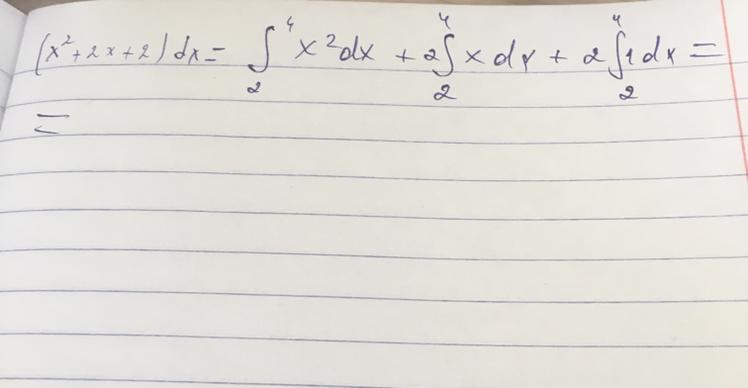 (x²+2x+2)dx = ∫₂⁴ x²dx + 2∫₂⁴ x dx + 2∫₂⁴ 1 dx =
=